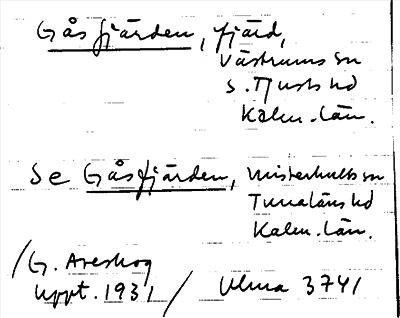 Gåsfjärden, fjärd,
Västrums sn
S. Tjusts hd
Kalm. län.
Se Gåsfjärden, Misterhults sn
Tunaläns hd
Kalm. län.
/G. Areskog
Uppt. 1931 / Ulma 3741